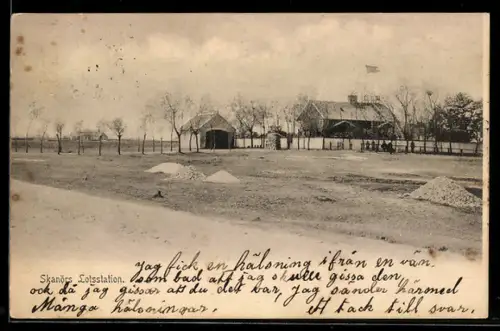 Skanörs Lotsstation.
Jag fick en hälsning ifrån en vän
som bad att jag skulle gissa den,
och då jag gissar att du det var, jag sänder härmed
Många hälsningar. ett tack till svar.